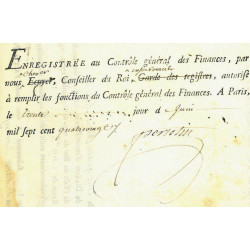 ENREGISTRÉE au Contrôle général des Finances, par
nous Conseiller du Roi, Garde des registres, autorisé
à remplir les fonctions du Contrôle général des Finances. A Paris,
le trente jour d Juin
mil sept cent quatrevingt